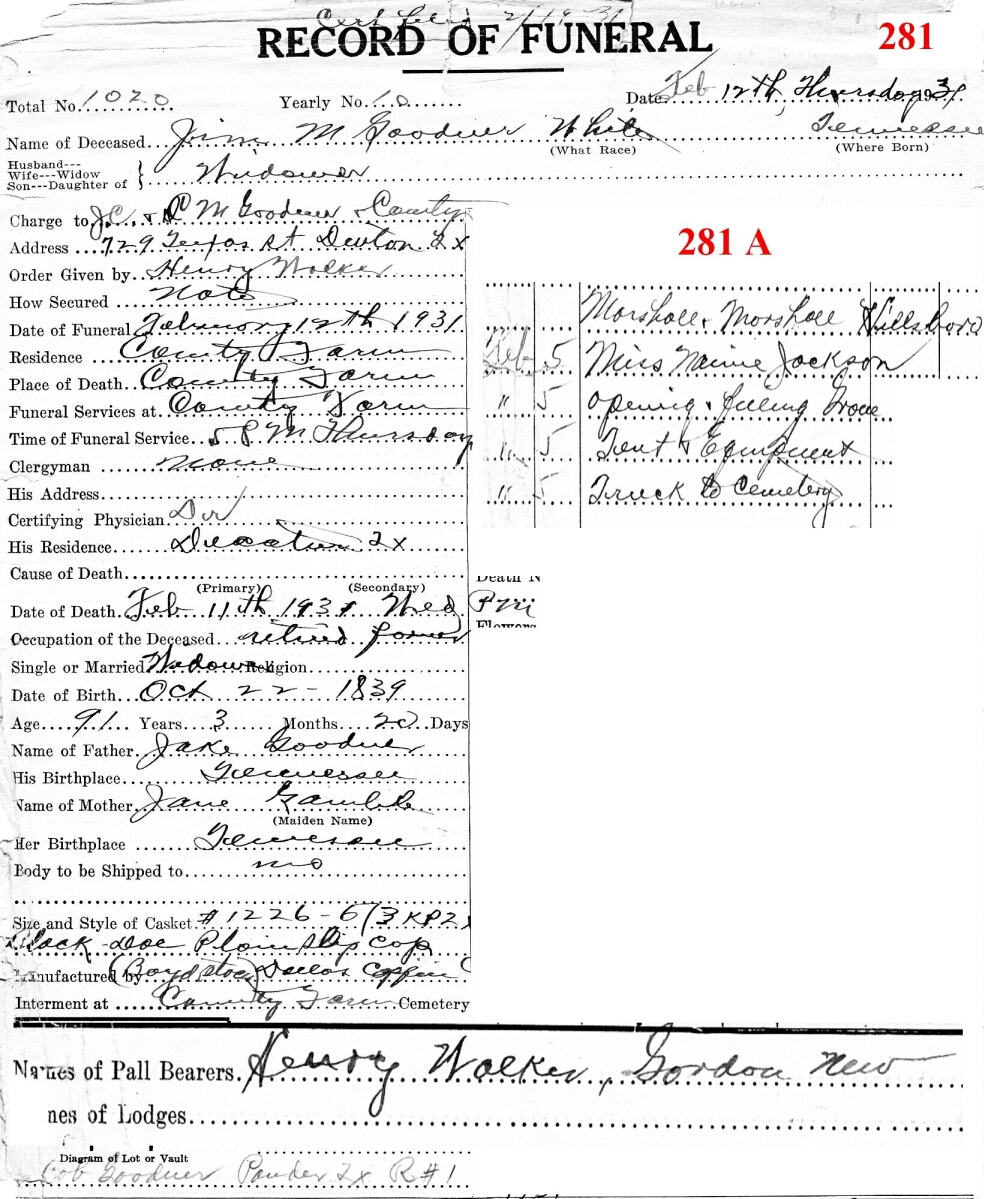 Cert filed 2/19-31
RECORD OF FUNERAL
281
Total No. 1020 Yearly No. 10 Date Feb 12th, Thursday 1931
Name of Deceased Jim M Goodner White Tennessee
(What Race) (Where Born)
Husband---
Wife---Widow
Son---Daughter of } Widower
Charge to J.C. & P M Goodner & County
Address 729 Texas St Denton Tx
Order Given by Henry Walker
How Secured Note
Date of Funeral February 12th 1931
Residence County Farm
Place of Death County Farm
Funeral Services at County Farm
Time of Funeral Service 5 P M Thursday
Clergyman none
His Address
Certifying Physician Dr
His Residence Decatur Tx
Cause of Death
(Primary) (Secondary)
Date of Death Feb 11th 1931 Wed
Occupation of the Deceased retired farmer
Single or Married Widower Religion
Date of Birth Oct 22 - 1839
Age 91 Years 3 Months 20 Days
Name of Father Jake Goodner
His Birthplace Tennessee
Name of Mother Jane Gamble
(Maiden Name)
Her Birthplace Tennessee
Body to be Shipped to no
Size and Style of Casket #1226-6/3
Black Doe Plain Slip Cap
Manufactured by (Boyd stoc) Dallas Coffin C
Interment at County Farm Cemetery
281 A
Marshall & Marshall Hillsboro
Feb 5 Miss Maine Jackson
" 5 Opening & filling Grave
" 5 Tent & Equipment
" 5 Truck to Cemetery
Death N
Flowers
Names of Pall Bearers Henry Walker, Gordon New
nes of Lodges
Diagram of Lot or Vault
Bob Goodner Ponder Tx R#1